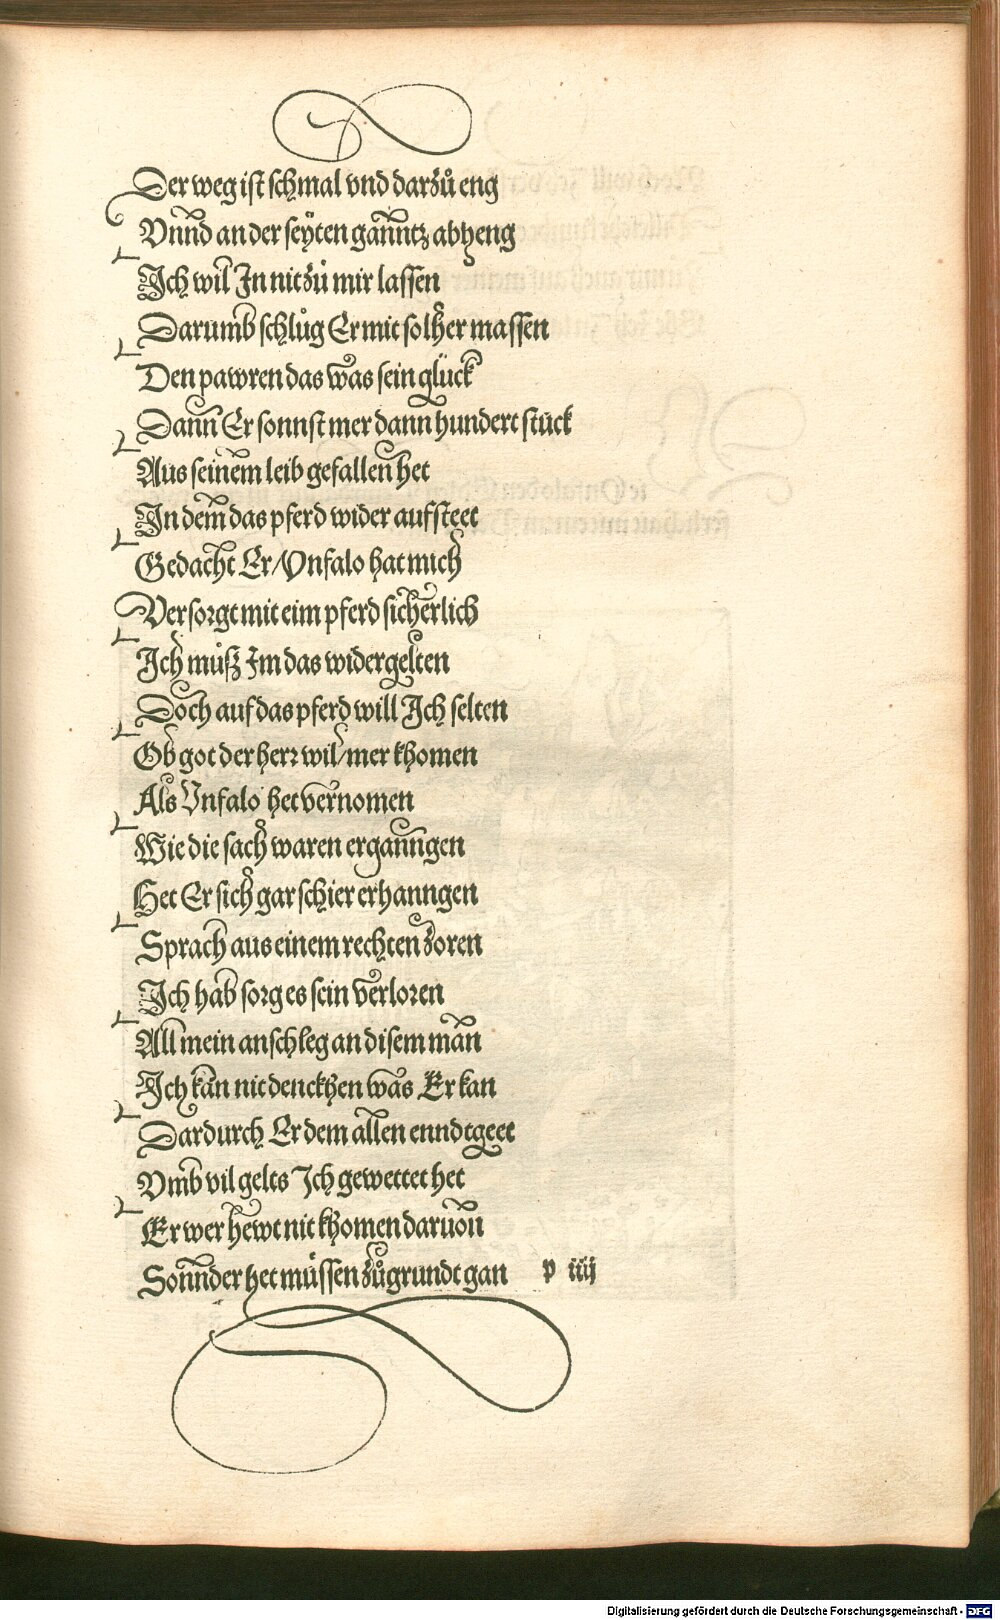 Der weg ist schmal vnd darzů eng
Vnnd an der seyten ganntz abheng
Ich wil In nit zů mir lassen
Darumb schlůg Er mit solher massen
Den pawren das was sein glück
Dann Er sonnst mer dann hundert stück
Aus seinem leib gefallen het
In dem das pferd wider aufsteet
Gedacht Er/Vnfalo hat mich
Versorgt mit eim pferd sicherlich
Ich můß Im das widergelten
Doch auf das pferd will Ich selten
Ob got der herr wil/mer khomen
Als Vnfalo het vernomen
Wie die sach waren erganngen
Het Er sich gar schier erhanngen
Sprach aus einem rechten zoren
Ich hab sorg es sein verloren
All mein anschleg an disem man
Ich kan nit denckhen was Er kan
Dardurch Er dem allen enndtgeet
Vmb vil gelts Ich gewettet het
Er wer hewt nit khomen daruon
Sonnder het müssen zůgrundt gan p iiij
Digitalisierung gefördert durch die Deutsche Forschungsgemeinschaft - DFG